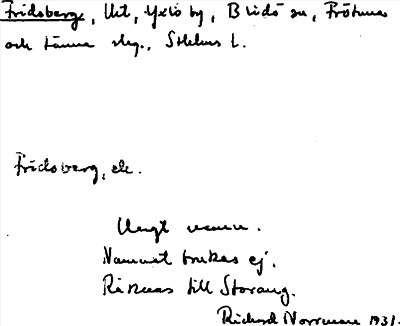 Fridsberg, Utt, Yxlö by, Blidö sn, Frötuna
och Länna slg., Sthlms l.
Fridsberg, ek.
Ungt namn.
Namnet brukas ej.
Räknas till Storäng.
Richard Norrman 1931.